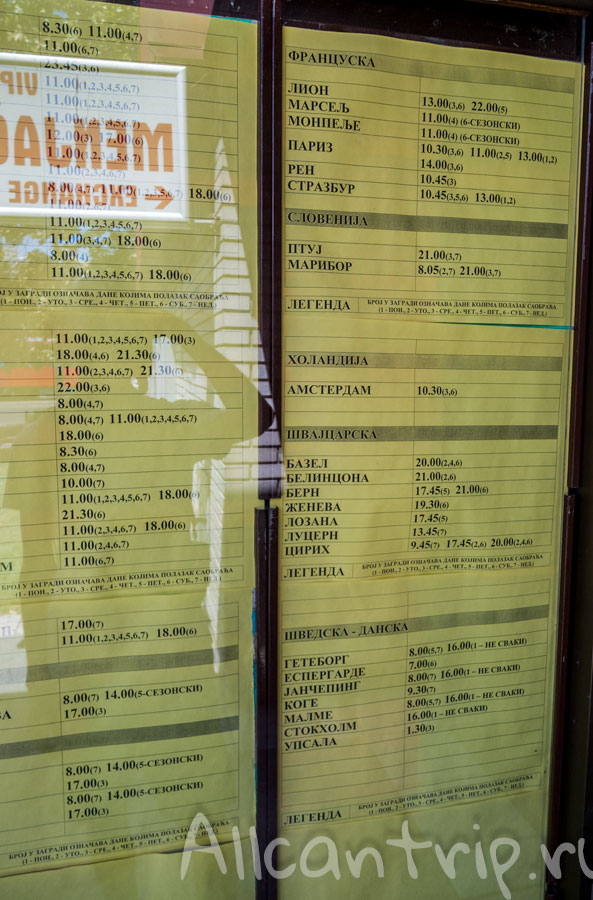 8.30(6) 11.00(4,7)
11.00(6,7)
23.45(3,6)
11.00(1,2,3,4,5,6,7)
11.00(1,2,3,4,5,6,7)
11.00(1,2,3,4,5,6,7)
12.00(3) 17.00(6)
11.00(1,2,3,4,5,6,7)
11.00(2,3,4,6,7)
8.00(4,7) 11.00(1,2,3,5,6,7) 18.00(6)
11.00(1,2,3,4,5,6,7)
11.00(3,4,7) 18.00(6)
8.00(4)
11.00(1,2,3,4,5,6,7) 18.00(6)
БРОЈ У ЗАГРАДИ ОЗНАЧАВА ДАНЕ КОЈИМА ПОЛАЗАК САОБРАЋА
(1 - ПОН., 2 - УТО., 3 - СРЕ., 4 - ЧЕТ., 5 - ПЕТ., 6 - СУБ., 7 - НЕД.)
11.00(1,2,3,4,5,6,7) 17.00(3)
18.00(4,6) 21.30(6)
11.00(2,3,4,6,7) 21.30(6)
22.00(3,6)
8.00(4,7)
8.00(4,7) 11.00(1,2,3,4,5,6,7)
18.00(6)
8.30(6)
8.00(4,7)
10.00(7)
11.00(1,2,3,4,5,6,7) 18.00(6)
21.30(6)
11.00(2,3,4,6,7) 18.00(6)
11.00(2,4,6,7)
М 11.00(6,7)
БРОЈ У ЗАГРАДИ ОЗНАЧАВА ДАНЕ КОЈИМА ПОЛАЗАК САОБРАЋА
(1 - ПОН., 2 - УТО., 3 - СРЕ., 4 - ЧЕТ., 5 - ПЕТ., 6 - СУБ., 7 - НЕД.)
17.00(7)
11.00(1,2,3,4,5,6,7) 18.00(6)
8.00(7) 14.00(5-СЕЗОНСКИ)
ВА 17.00(3)
8.00(7) 14.00(5-СЕЗОНСКИ)
17.00(3)
8.00(7) 14.00(5-СЕЗОНСКИ)
17.00(3)
БРОЈ У ЗАГРАДИ ОЗНАЧАВА ДАНЕ КОЈИМА ПОЛАЗАК САОБРАЋА
(1 - ПОН., 2 - УТО., 3 - СРЕ., 4 - ЧЕТ., 5 - ПЕТ., 6 - СУБ., 7 - НЕД.)
VIP
EXCHANGE
ФРАНЦУСКА
ЛИОН
МАРСЕЉ 13.00(3,6) 22.00(5)
МОНПЕЉЕ 11.00(4) (6-СЕЗОНСКИ)
11.00(4) (6-СЕЗОНСКИ)
ПАРИЗ 10.30(3,6) 11.00(2,5) 13.00(1,2)
14.00(3,6)
РЕН 10.45(3)
СТРАЗБУР 10.45(3,5,6) 13.00(1,2)
СЛОВЕНИЈА
ПТУЈ 21.00(3,7)
МАРИБОР 8.05(2,7) 21.00(3,7)
ЛЕГЕНДА БРОЈ У ЗАГРАДИ ОЗНАЧАВА ДАНЕ КОЈИМА ПОЛАЗАК САОБРАЋА
(1 - ПОН., 2 - УТО., 3 - СРЕ., 4 - ЧЕТ., 5 - ПЕТ., 6 - СУБ., 7 - НЕД.)
ХОЛАНДИЈА
АМСТЕРДАМ 10.30(3,6)
ШВАЈЦАРСКА
БАЗЕЛ 20.00(2,4,6)
БЕЛИНЦОНА 21.00(2,6)
БЕРН 17.45(5) 21.00(6)
ЖЕНЕВА 19.30(6)
ЛОЗАНА 17.45(5)
ЛУЦЕРН 13.45(7)
ЦИРИХ 9.45(7) 17.45(2,6) 20.00(2,4,6)
ЛЕГЕНДА БРОЈ У ЗАГРАДИ ОЗНАЧАВА ДАНЕ КОЈИМА ПОЛАЗАК САОБРАЋА
(1 - ПОН., 2 - УТО., 3 - СРЕ., 4 - ЧЕТ., 5 - ПЕТ., 6 - СУБ., 7 - НЕД.)
ШВЕДСКА - ДАНСКА
ГЕТЕБОРГ 8.00(5,7) 16.00(1 – НЕ СВАКИ)
ЕСПЕРГАРДЕ 7.00(6)
ЈАНЧЕПИНГ 8.00(7) 16.00(1 – НЕ СВАКИ)
КОГЕ 9.30(7)
МАЛМЕ 8.00(5,7) 16.00(1 – НЕ СВАКИ)
СТОКХОЛМ 16.00(1 – НЕ СВАКИ)
УПСАЛА 1.30(3)
ЛЕГЕНДА БРОЈ У ЗАГРАДИ ОЗНАЧАВА ДАНЕ КОЈИМА ПОЛАЗАК САОБРАЋА
(1 - ПОН., 2 - УТО., 3 - СРЕ., 4 - ЧЕТ., 5 - ПЕТ., 6 - СУБ., 7 - НЕД.)
Allcantrip.ru